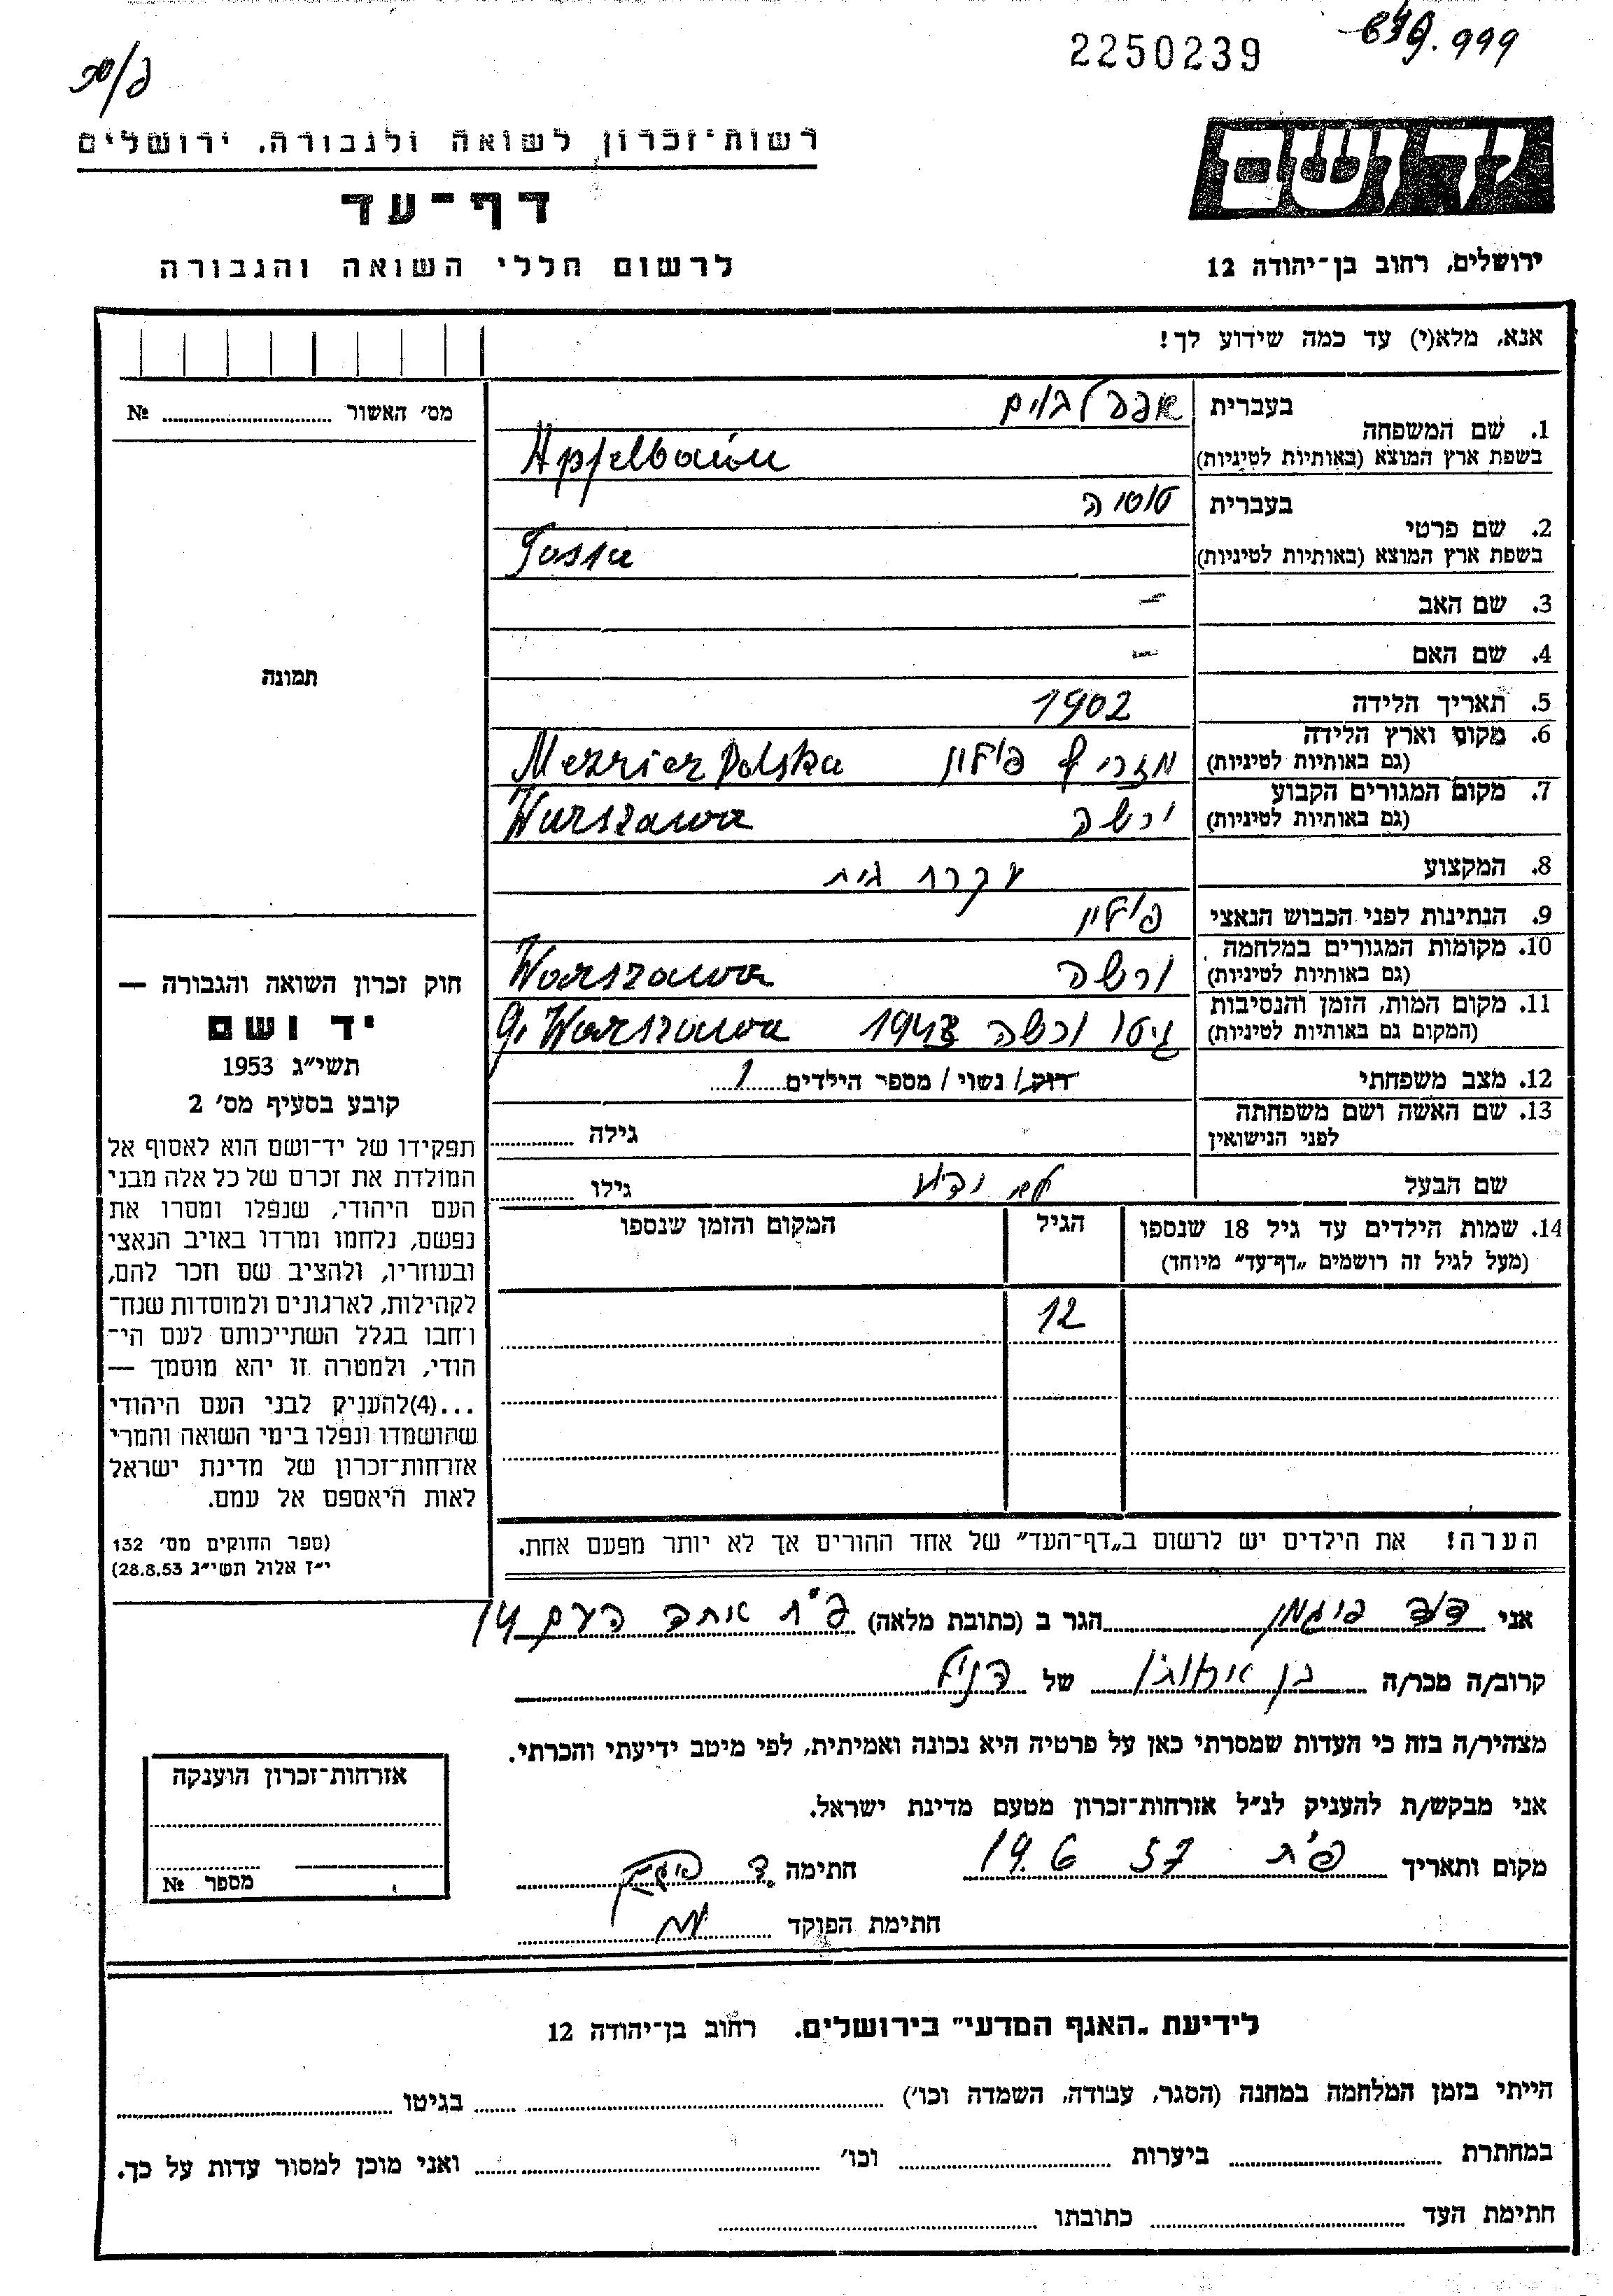 2250239
999
רשות־זכרון לשואה ולגבורה, ירושלים
דף־עד
לרשום חללי השואה והגבורה
יד ושם
ירושלים, רחוב בן־יהודה 12
אנא, מלא(י) עד כמה שידוע לך!
מס׳ האשור № 
1. שם המשפחה
בעברית אפעלבוים
בשפת ארץ המוצא (באותיות לטיניות) Apfelbaum
2. שם פרטי
בעברית טוסיה
בשפת ארץ המוצא (באותיות לטיניות) Tosia
3. שם האב –
4. שם האם –
תמונה
5. תאריך הלידה 1902
6. מקום וארץ הלידה
(גם באותיות לטיניות) מזריץ פולין Mezriez Polska
7. מקום המגורים הקבוע
(גם באותיות לטיניות) ורשה Warszawa
8. המקצוע עקרת בית
9. הנתינות לפני הכבוש הנאצי פולין
10. מקומות המגורים במלחמה
(גם באותיות לטיניות) ורשה Warszawa
11. מקום המות, הזמן והנסיבות
(המקום גם באותיות לטיניות) גיטו ורשה 1943 g. Warszawa
12. מצב משפחתי רוק/ נשוי/ מספר הילדים 1
13. שם האשה ושם משפחתה
לפני הנישואין גילה
שם הבעל לא ידוע גילו
14. שמות הילדים עד גיל 18 שנספו
(מעל לגיל זה רושמים „דף־עד״ מיוחד)
הגיל
המקום והזמן שנספו
12
הערה! את הילדים יש לרשום ב„דף־העד״ של אחד ההורים אך לא יותר מפעם אחת.
חוק זכרון השואה והגבורה —
יד ושם
תשי״ג 1953
קובע בסעיף מס׳ 2
תפקידו של יד־ושם הוא לאסוף אל
המולדת את זכרם של כל אלה מבני
העם היהודי, שנפלו ומסרו את
נפשם, נלחמו ומרדו באויב הנאצי
ובעוזריו, ולהציב שם וזכר להם,
לקהילות, לארגונים ולמוסדות שנח־
רבו בגלל השתייכותם לעם הי־
הודי, ולמטרה זו יהא מוסמך —
...(4)להעניק לבני העם היהודי
שהושמדו ונפלו בימי השואה והמרי
אזרחות־זכרון של מדינת ישראל
לאות היאספם אל עמם.
(ספר החוקים מס׳ 132
י״ז אלול תשי״ג 28.8.53)
אני דוד פיגמן הגר ב (כתובת מלאה) פ״ת אחד העם 14
קרוב/ה מכר/ה בן של
מצהיר/ה בזה כי העדות שמסרתי כאן על פרטיה היא נכונה ואמיתית, לפי מיטב ידיעתי והכרתי.
אני מבקש/ת להעניק לנ״ל אזרחות־זכרון מטעם מדינת ישראל.
מקום ותאריך פ״ת 19.6 57 חתימה ד. פיגמן
חתימת הפוקד
אזרחות־זכרון הוענקה
מספר №
לידיעת „האגף המדעי״ בירושלים. רחוב בן־יהודה 12
הייתי בזמן המלחמה במחנה (הסגר, עבודה, השמדה וכו׳) בגיטו
במחתרת ביערות וכו׳ ואני מוכן למסור עדות על כך.
חתימת העד כתובתו